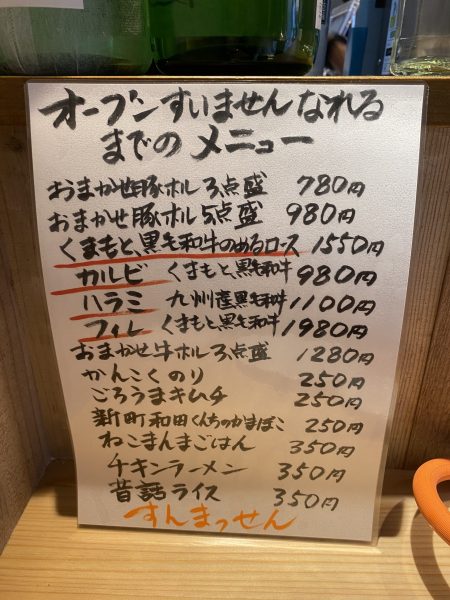 オープンすいませんなれる
までのメニュー
おまかせ豚ホル3点盛 780円
おまかせ豚ホル5点盛 980円
くまもと黒毛和牛のめるロース 1550円
カルビ くまもと黒毛和牛 980円
ハラミ 九州産黒毛和牛 1100円
フィレ くまもと黒毛和牛 1980円
おまかせ牛ホル3点盛 1280円
かんこくのり 250円
ごろうまキムチ 250円
新町和田くんちのかまぼこ 250円
ねこまんまごはん 350円
チキンラーメン 350円
昔話ライス 350円
すんまっせん